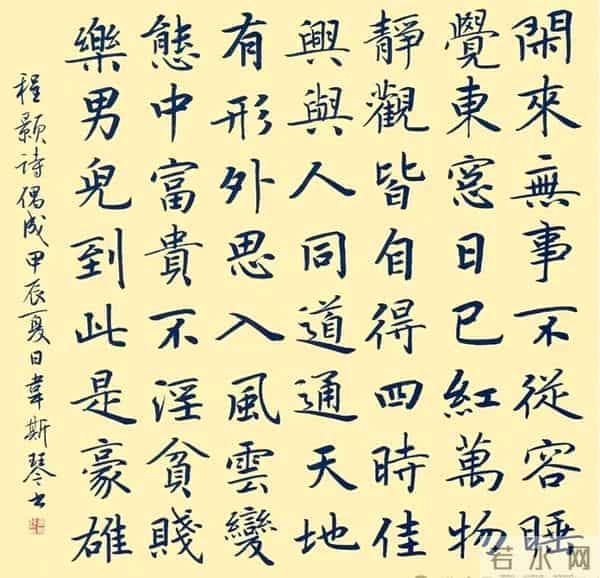 閑來無事不從容睡
覺東窓日已紅萬物
靜觀皆自得四時佳
興與人同道通天地
有形外思入風雲變
態中富貴不淫貧賤
樂男兒到此是豪雄
程顥诗偶成甲辰夏日韋斯琴书
若水网